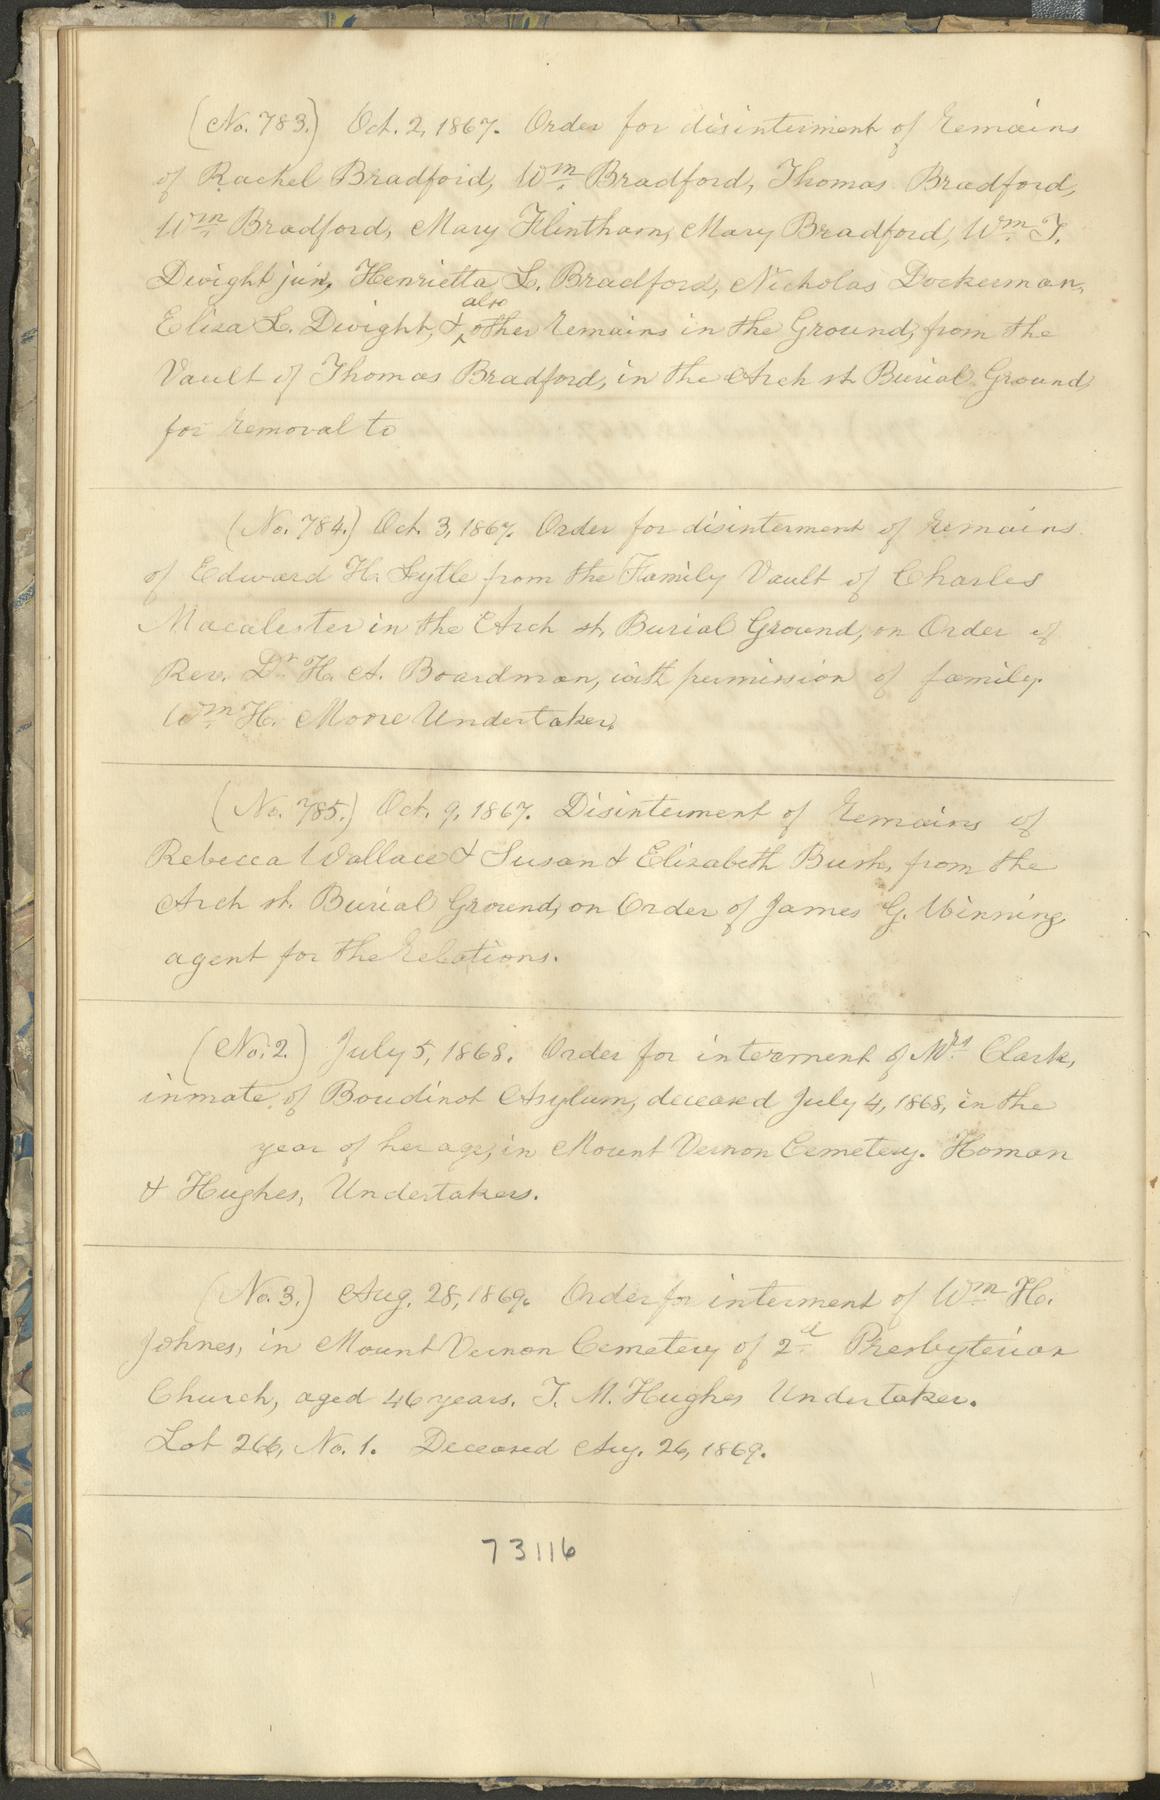 (No. 783.) Oct. 2, 1867. Order for disinterment of Remains
of Rachel Bradford, Wm. Bradford, Thomas Bradford,
Wm. Bradford, Mary Flintham, Mary Bradford, Wm. T.
Dwight jun, Henrietta L. Bradford, Nicholas Dockerman,
Eliza L. Dwight, & also other Remains in the Ground, from the
Vault of Thomas Bradford, in the Arch st Burial Ground,
for Removal to
(No. 784.) Oct. 3, 1867. Order for disinterment of Remains
of Edward H. Lytle from the Family Vault of Charles
Macalester in the Arch st. Burial Ground, on Order of
Rev. Dr. H. A. Boardman, with permission of family.
Wm. H. Moore Undertaker.
(No. 785.) Oct. 9, 1867. Disinterment of Remains of
Rebecca Wallace & Susan & Elizabeth Bush, from the
Arch st. Burial Ground, on Order of James G. Winning,
agent for the Relations.
(No. 2.) July 5, 1868. Order for interment of Mrs. Clark,
inmate of Boudinot Asylum, deceased July 4, 1868, in the
year of her age, in Mount Vernon Cemetery. Homan
& Hughes, Undertakers.
(No. 3.) Aug. 28, 1869. Order for interment of Wm. H.
Johnes, in Mount Vernon Cemetery of 2d Presbyterian
Church, aged 46 years. T. M. Hughes Undertaker.
Lot 266, No. 1. Deceased Aug. 26, 1869.
73116